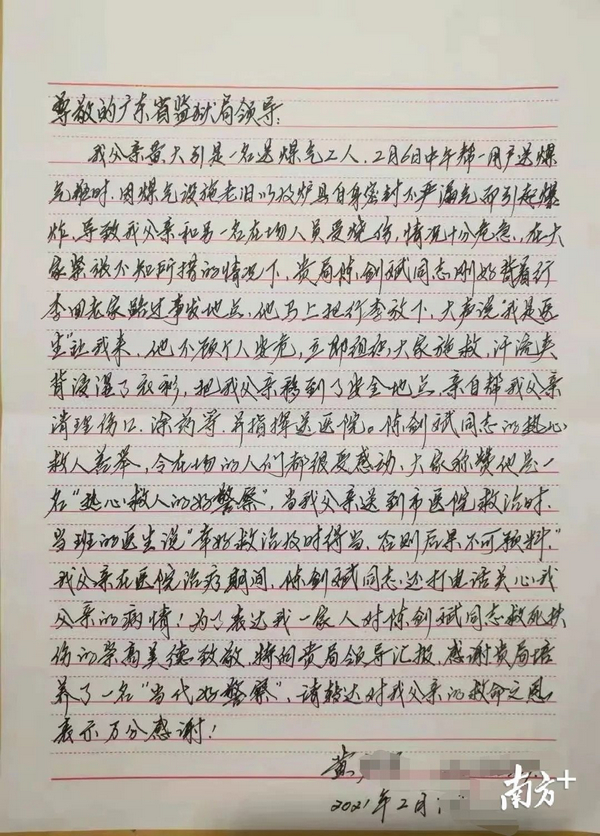 尊敬的广东省监狱局领导：
我父亲黄大引是一名送煤气工人，2月6日中午帮一用户送煤
气瓶时，因煤气设施老旧以及炉具自身密封不严漏气而引起爆
炸，导致我父亲和另一名在场人员受烧伤，情况十分危急，在大
家紧张不知所措的情况下，贵局陈剑斌同志刚好背着行
李回老家路过事发地点，他马上把行李放下，大声说“我是医
生”让我来，他不顾个人安危，立即组织大家施救，汗流夹
背浸湿了衣衫，把我父亲移到了安全地点，亲自帮我父亲
清理伤口、涂药等并指挥送医院。陈剑斌同志的热心
救人善举，令在场的人们都很受感动、大家称赞他是一
名“热心救人的好警察”，当我父亲送到市医院救治时，
当班的医生说“幸好救治及时得当，否则后果不可预料”，
我父亲在医院治疗期间，陈剑斌同志还打电话关心我
父亲的病情！为了表达我一家人对陈剑斌同志救死扶
伤的崇高美德致敬，特向贵局领导汇报，感谢贵局培
养了一名“当代好警察”，请转达对我父亲的救命之恩
表示万分感谢！
黄
2021年2月
南方+